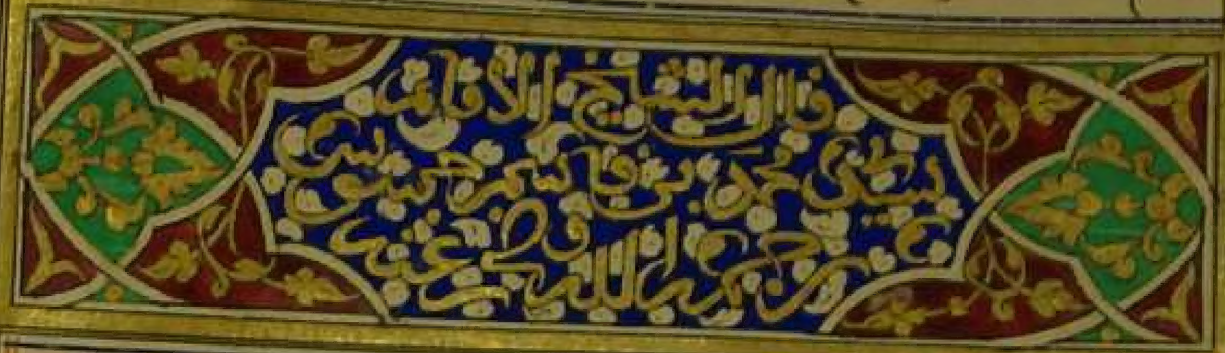 قال الشيخ
سيدي محمد بن قاسم جسوس
رحمه الله ورضي عنه